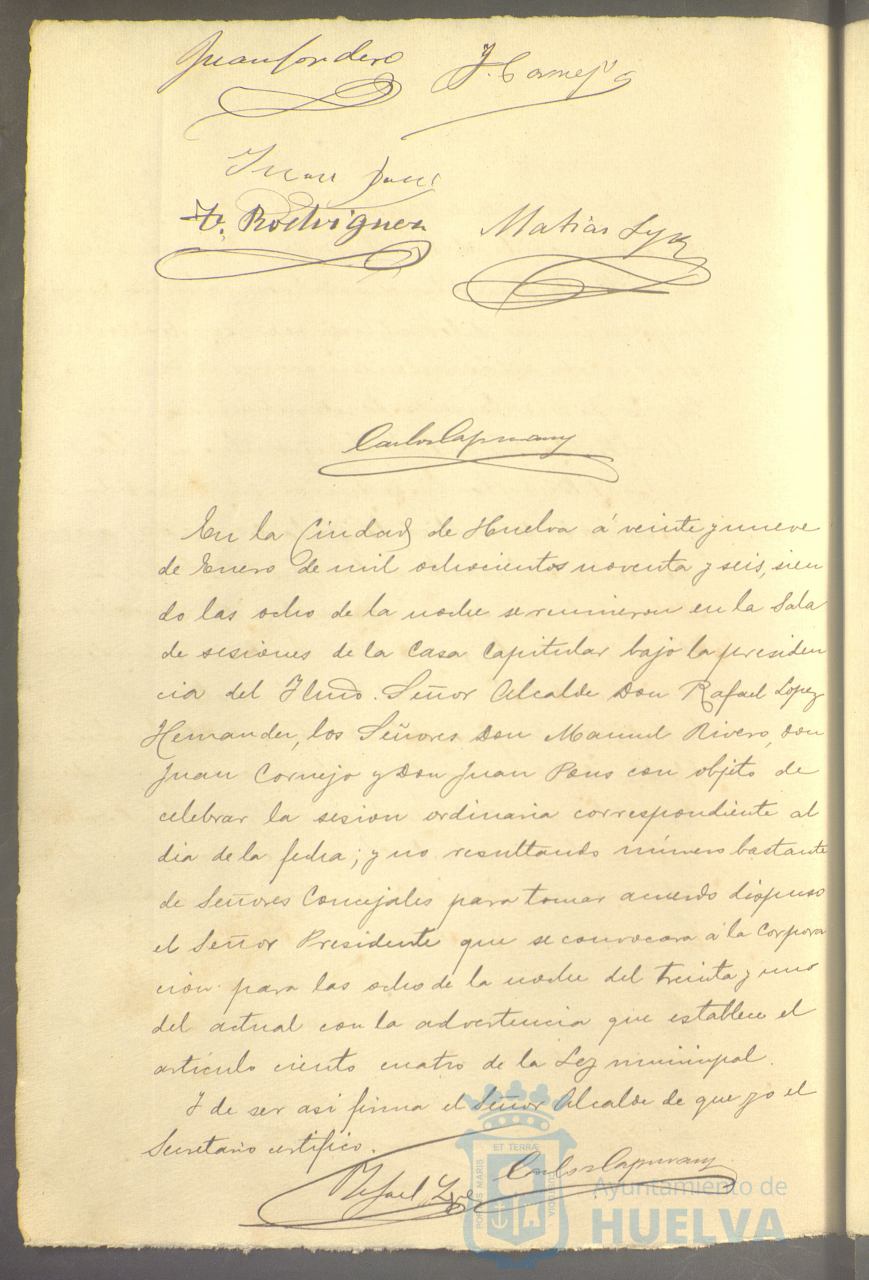 Juan Cordero J. Cornejo
Juan Pons
F. Rodriguez Matias
Carlos Capmany
En la Ciudad de Huelva á veinte y nueve
de Enero de mil ochocientos noventa y seis, sien
do las ocho de la noche se reunieron en la Sala
de sesiones de la Casa Capitular bajo la presiden
cia del Ilmo. Señor Alcalde Don Rafael López
Hernandez, los Señores Don Manuel Rivero, Don
Juan Cornejo y Don Juan Pons con objeto de
celebrar la sesion ordinaria correspondiente al
dia de la fecha; y no resultando número bastante
de Señores Concejales para tomar acuerdo dispuso
el Señor Presidente que se convocara á la Corpora
cion para las ocho de la noche del treinta y uno
del actual con la advertencia que establece el
artículo ciento cuatro de la Ley municipal.
Y de ser asi firma el Señor Alcalde de que yo el
Secretario certifico.
Rafael Carlos Capmany
PORTUS MARIS ET TERRÆ CUSTODIA
Ayuntamiento de
HUELVA